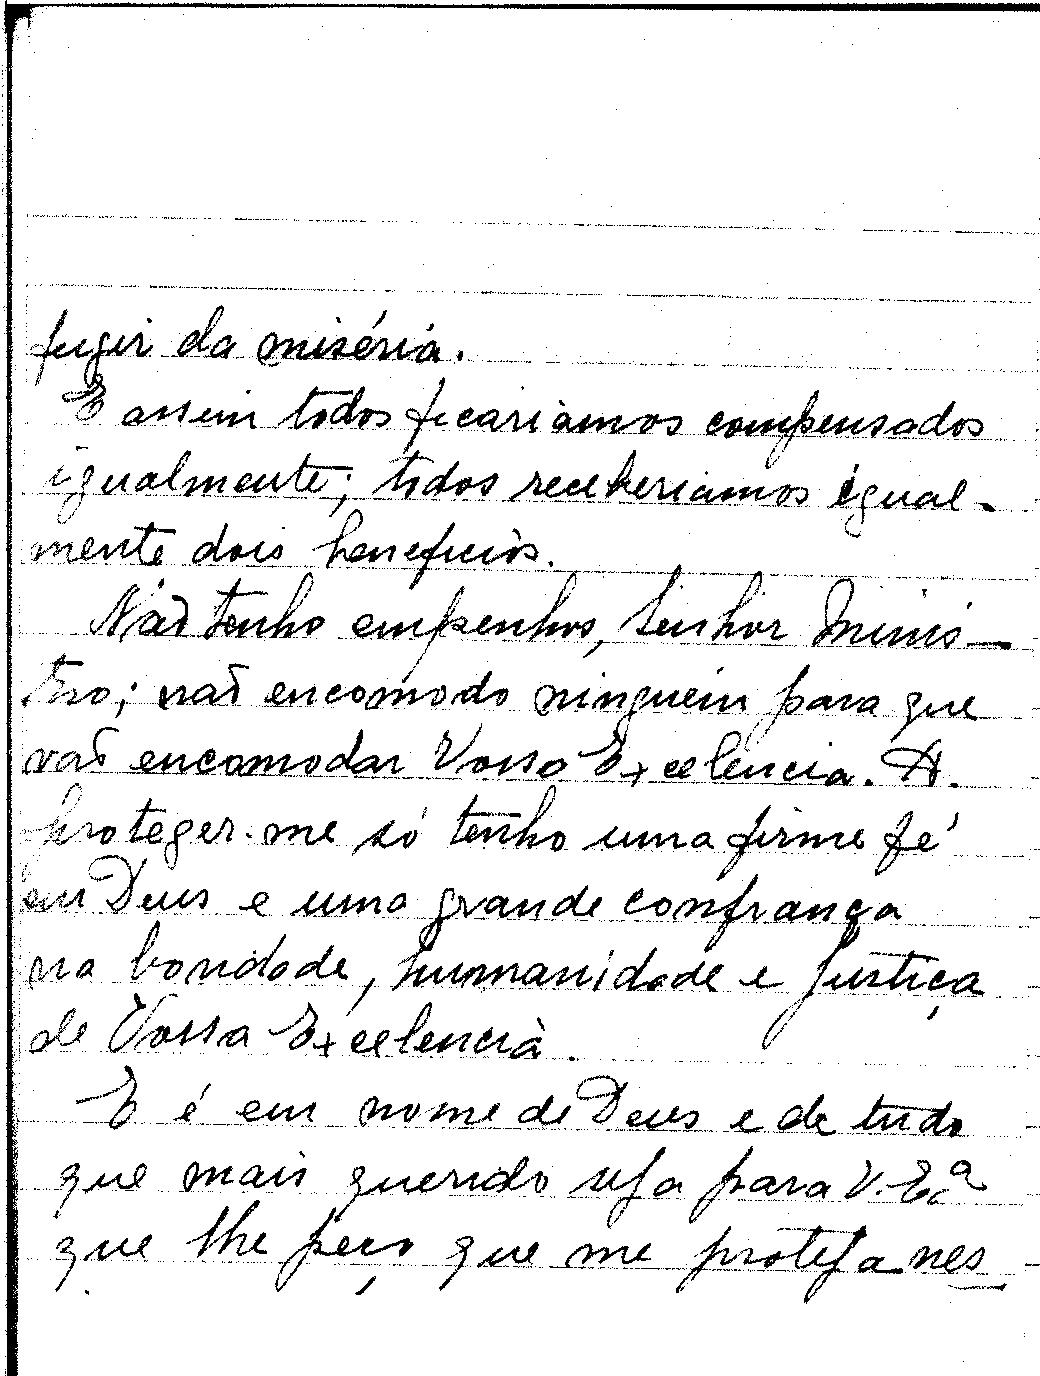 fugir da miséria.
E assim todos ficariamos compensados
igualmente; todos receberiamos igual-
mente dois beneficios.
Não tenho empenhos, Senhor Minis-
tro; não encomodo ninguem para que
vão encomodar Vossa Excelencia. A
proteger-me só tenho uma firme fé
em Deus e uma grande confiança
na bondade, humanidade e justiça
de Vossa Excelencia.
E é em nome de Deus e de tudo
que mais querido seja para V. Exª
que lhe peço que me proteja nes